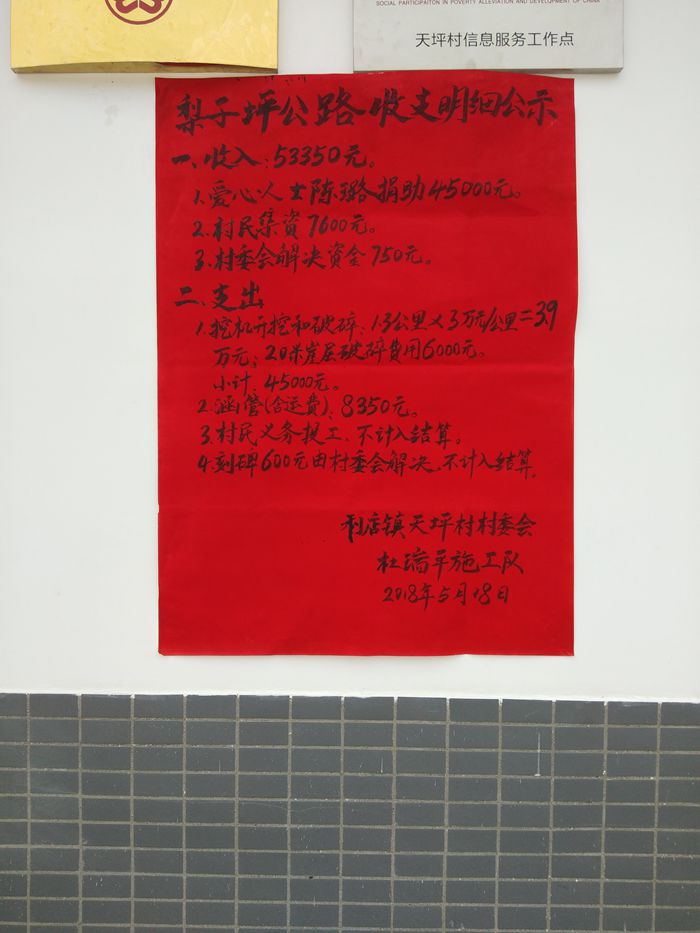 SOCIAL PARTICIPAITON IN POVERTY ALLEVIATION AND DEVELOPMENT OF CHINA
天坪村信息服务工作点
梨子坪公路收支明细公示
一、收入:53350元。
1.爱心人士陈璐捐助45000元。
2.村民集资7600元。
3.村委会解决资金750元。
二、支出
1.挖机开挖和破碎:1.3公里×3万元/公里=3.9
万元;20米崖层破碎费用6000元。
小计:45000元。
2.涵管(含运费):8350元。
3.村民义务投工、不计入结算。
4.刻碑600元由村委会解决,不计入结算。
利店镇天坪村村委会
杜瑞平施工队
2018年5月18日